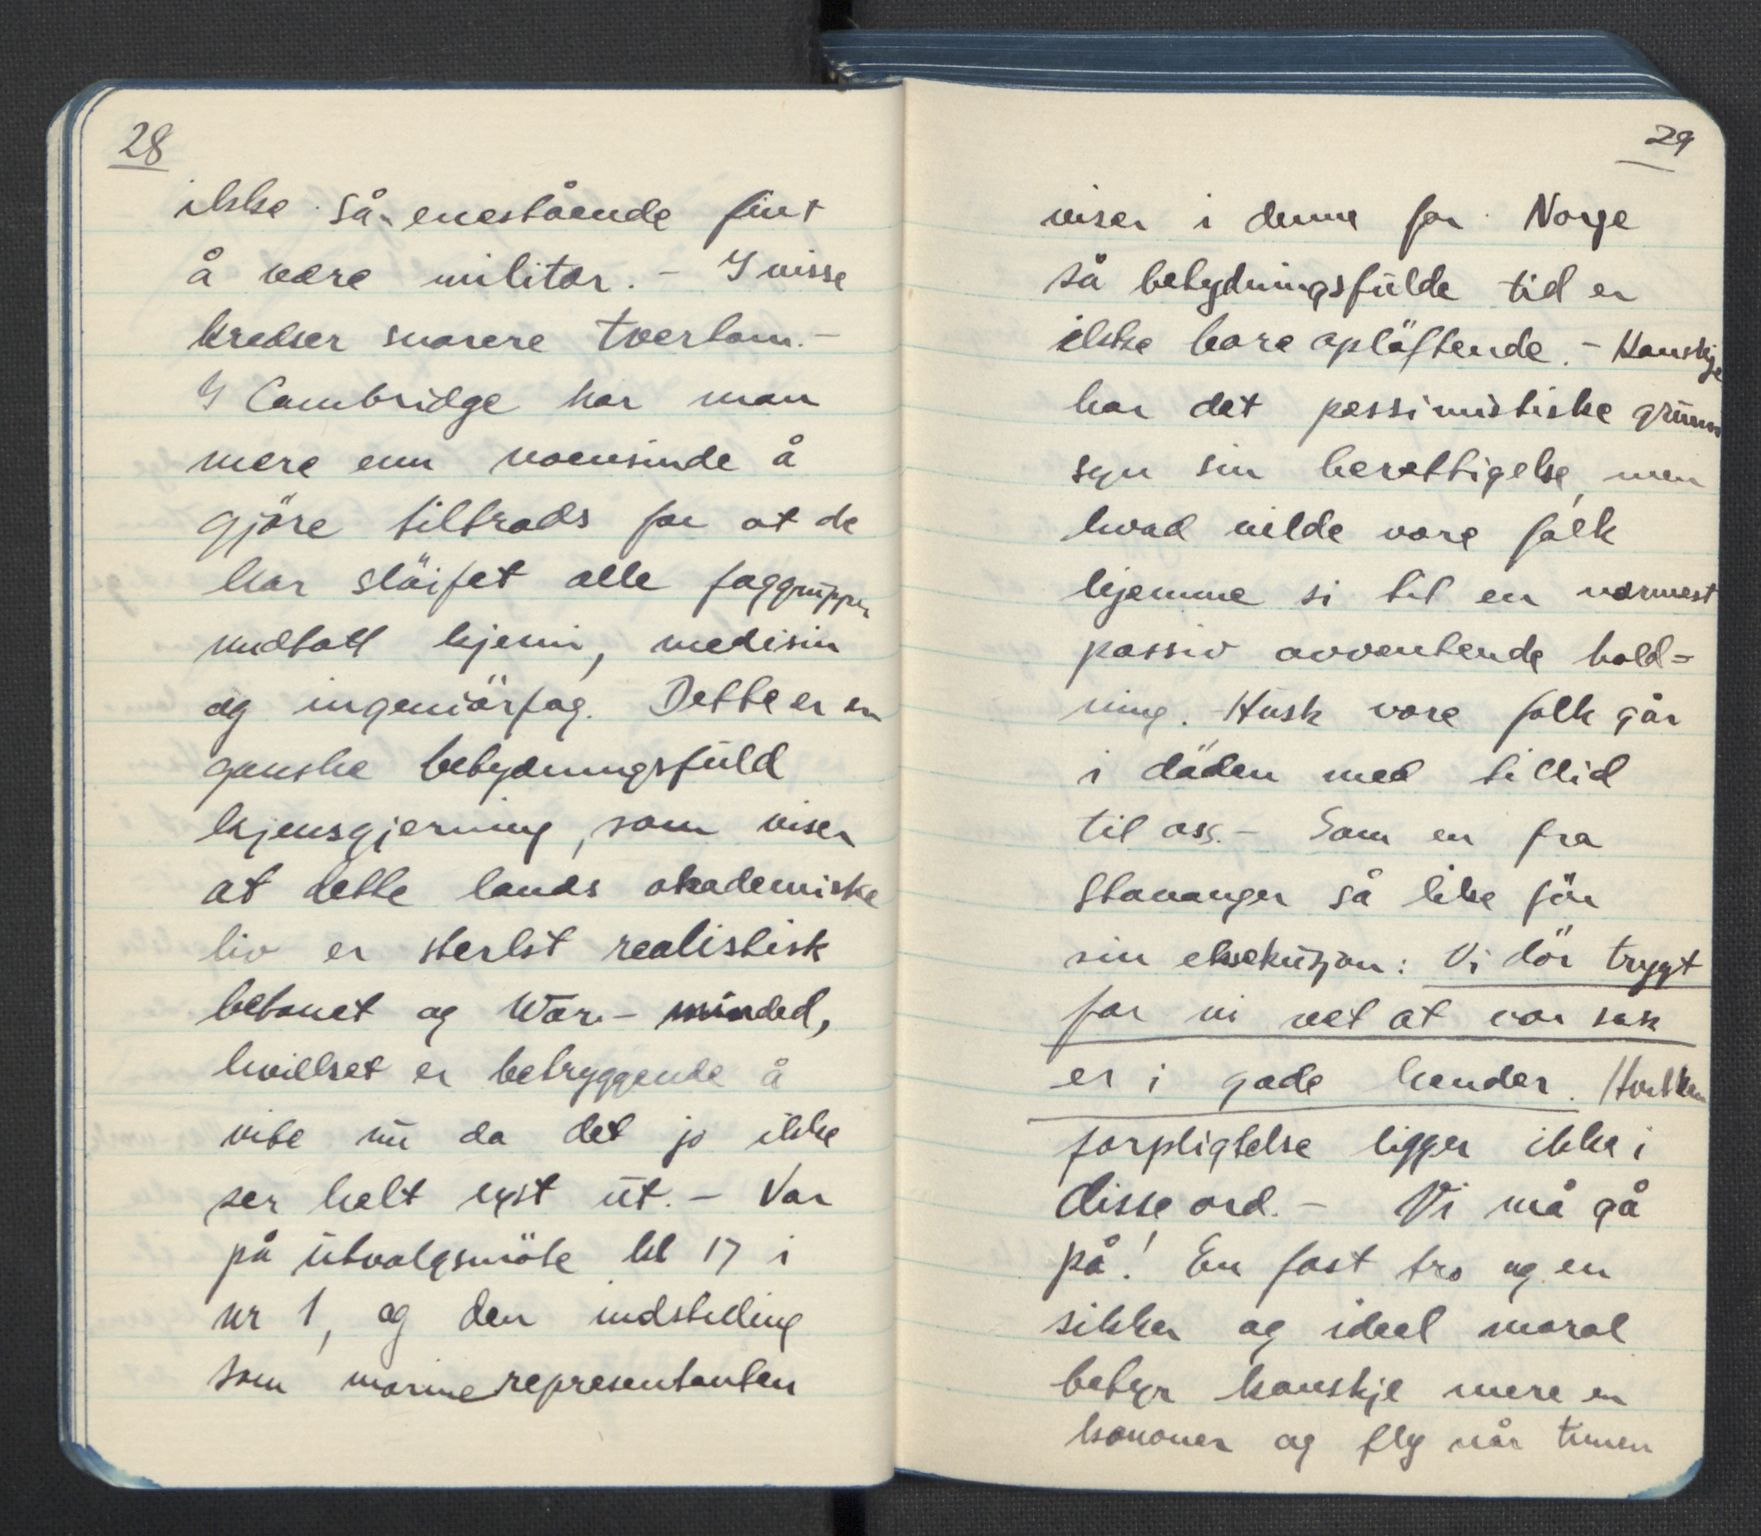 28
ikke så enestående fint
å være militær. - I visse
kretser snarere tvertom. -
I Cambridge har man
mere enn noensinde å
gjöre tiltrods for at de
har slöifet alle faggrupper
undtatt kjemi, medisin
og ingeniörfag. Dette er en
ganske betydningsfuld
kjensgjerning, som viser
at dette lands akademiske
liv er sterkt realistisk
betonet og War-minded,
hvilket er betryggende å
vite nu da det jo ikke
ser helt lyst ut. - Var
på utvalgsmöte kl 17 i
nr 1, og den indstilling
som marinerepresentanten
29
viser i denne for Norge
så betydningsfulde tid er
ikke bare oplöftende. - Kanskje
har det pessimistiske grunn
syn sin berettigelse, men
hvad vilde vore folk
hjemme si til en nærmest
passiv avventende hold=
ning. Husk vore folk går
i döden med tillid
til oss. - Som en fra
Stavanger så like för
sin eksekusjon: Vi dör trygt
for vi vet at vor sak
er i gode hender. Hvilken
forpligtelse ligger ikke i
disse ord. - Vi må gå
på! En fast tro og en
sikker og ideel moral
betyr kanskje mere en
kanoner og fly når timen